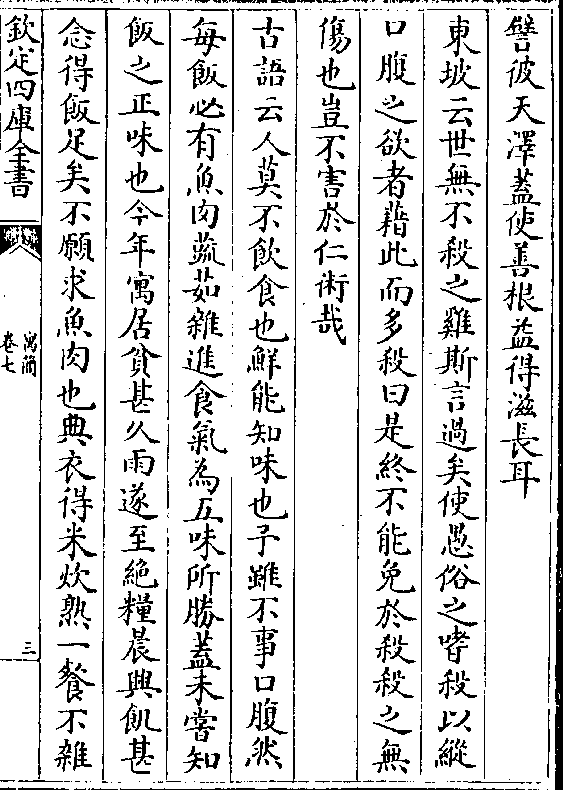 譬彼天澤蓋使善根益得滋長耳
東坡云世無不殺之雞斯言過矣使愚俗之嗜殺以縱
口腹之欲者藉此而多殺曰是終不能免於殺殺之無
傷也豈不害於仁術哉
古語云人莫不飲食也鮮能知味也予雖不事口腹然
每飯必有魚肉蔬茹雜進食氣為五味所勝蓋未嘗知
飯之正味也今年寓居貧甚久雨遂至絶糧晨興飢甚
念得飯足矣不願求魚肉也典衣得米炊熟一餐不雜
欽定四庫全書
寓簡
卷七
三